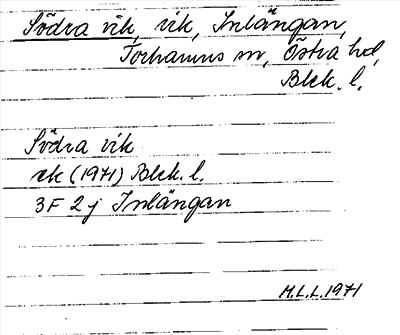 Södra vik, vik, Inlängan,
Torhamns sn, Östra hd,
Blek. l.
Södra vik
ek (1971) Blek. l.
3F 2j Inlängan
M.L.L. 1971